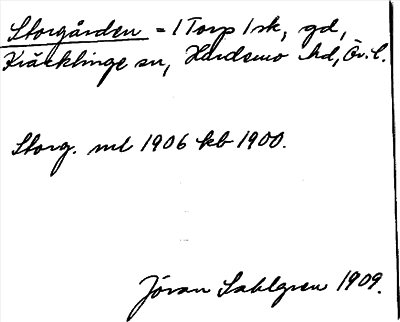 Storgården = 1 Torp 1 sk, gd,
Kräcklinge sn, Hardemo hd, Ör. l.
Storg. ml 1906 kb 1900.
Jöran Sahlgren 1909.